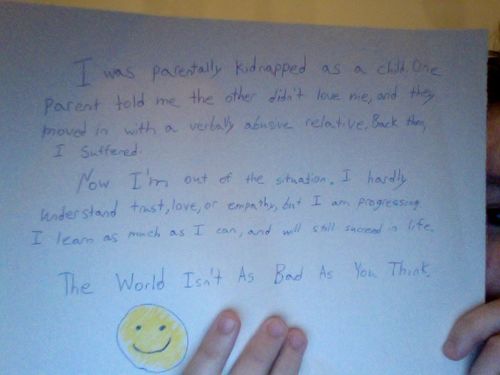 I was parentally kidnapped as a child. One
parent told me the other didn't love me, and they
moved in with a verbally abusive relative. Back then,
I suffered.
Now I'm out of the situation. I hardly
understand trust, love, or empathy, but I am progressing
I learn as much as I can, and will still succeed in life.
The World Isn't As Bad As You Think.